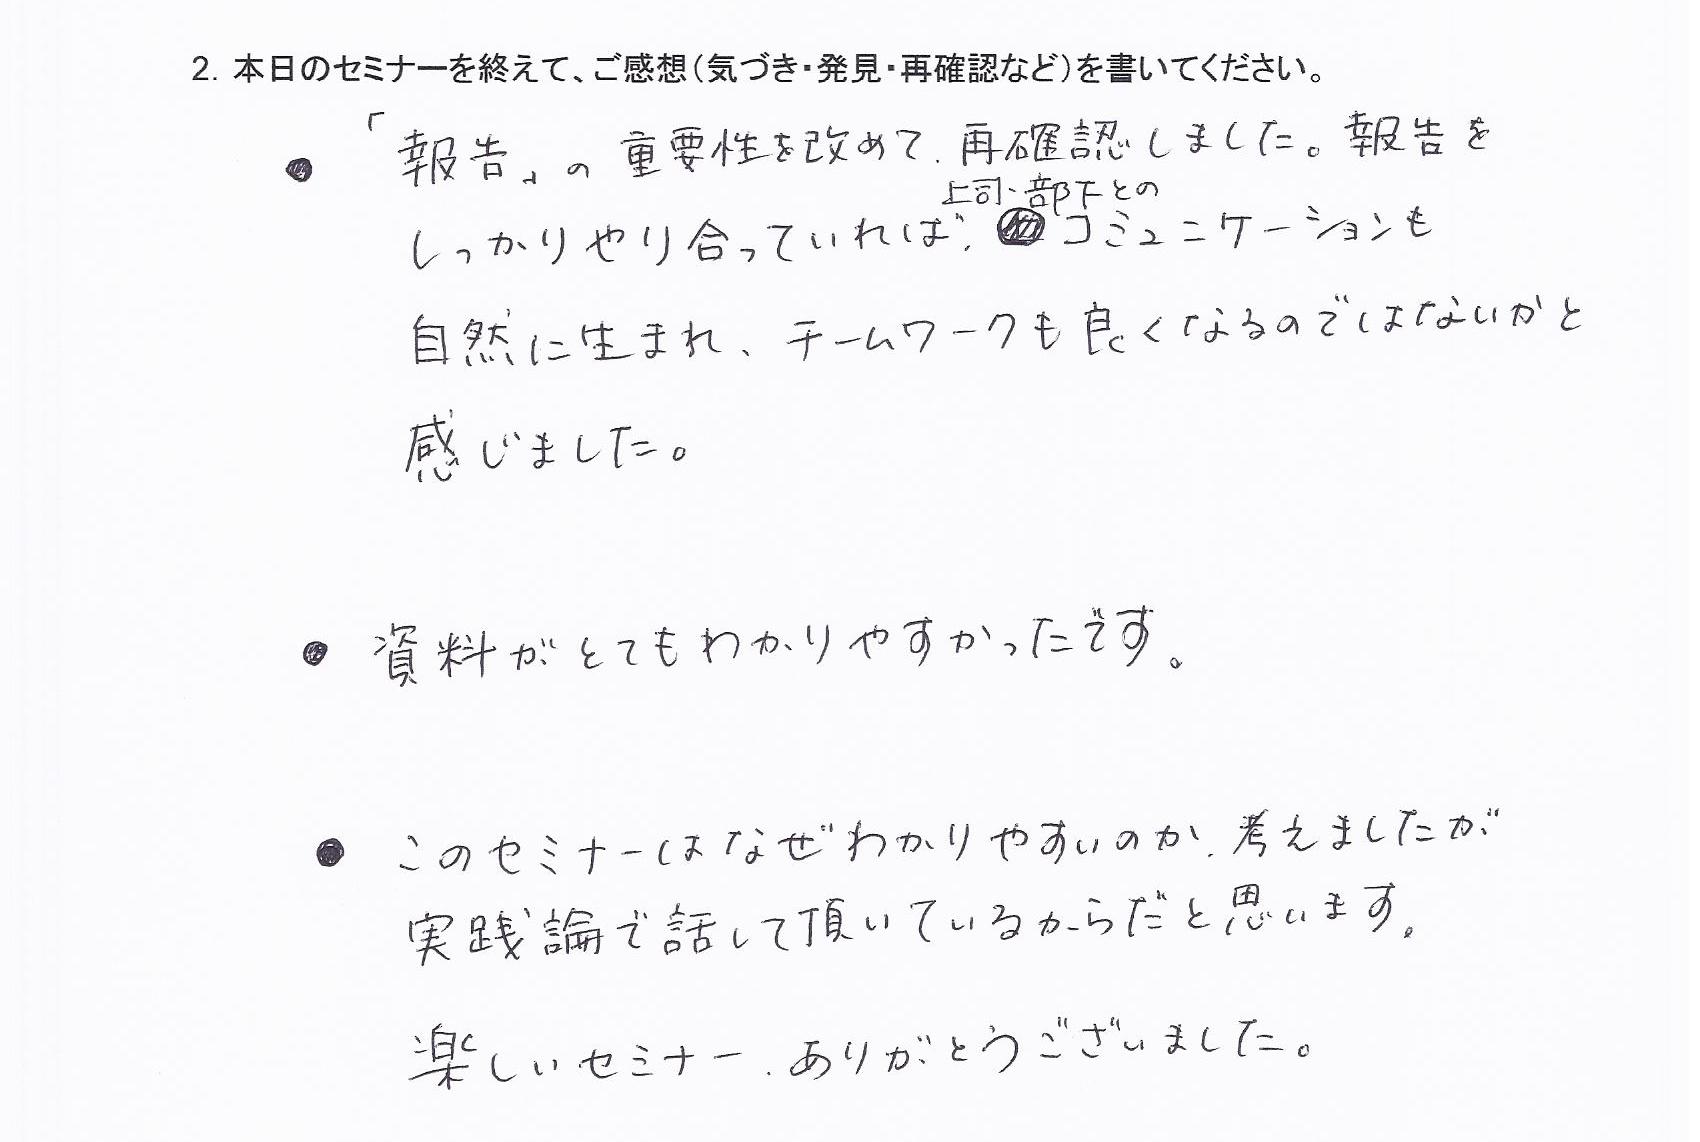 2. 本日のセミナーを終えて、ご感想（気づき・発見・再確認など）を書いてください。
● 「報告」の重要性を改めて、再確認しました。報告を
上司・部下との
しっかりやり合っていれば、コミュニケーションも
自然に生まれ、チームワークも良くなるのではないかと
感じました。
● 資料がとてもわかりやすかったです。
● このセミナーはなぜわかりやすいのか、考えましたが
実践論で話して頂いているからだと思います。
楽しいセミナー、ありがとうございました。